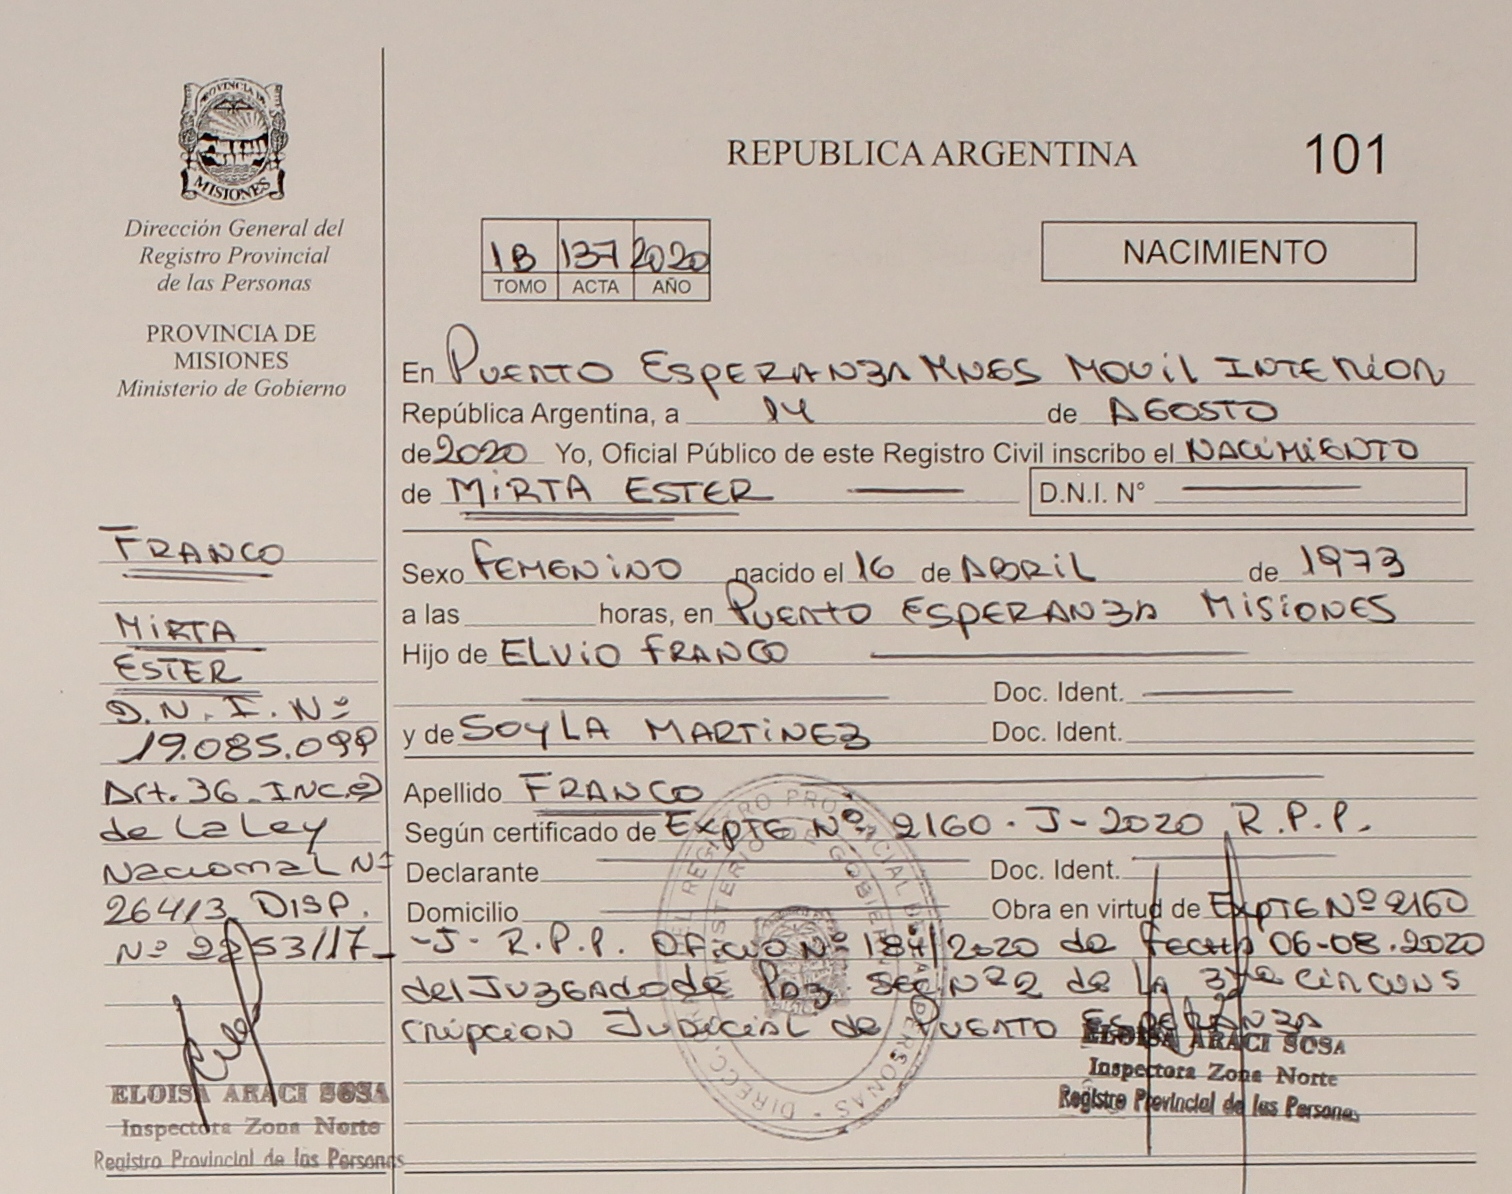 PROVINCIA DE
MISIONES
Dirección General del
Registro Provincial
de las Personas
PROVINCIA DE
MISIONES
Ministerio de Gobierno
REPUBLICA ARGENTINA
101
1B 137 2020
TOMO ACTA AÑO
NACIMIENTO
En PUERTO ESPERANZA MNES MOVIL INTERIOR
República Argentina, a 14 de AGOSTO
de 2020 Yo, Oficial Público de este Registro Civil inscribo el NACIMIENTO
de MIRTA ESTER D.N.I. N°
Sexo FEMENINO nacido el 16 de ABRIL de 1973
a las horas, en PUERTO ESPERANZA MISIONES
Hijo de ELVIO FRANCO
Doc. Ident.
y de SOYLA MARTINEZ Doc. Ident.
Apellido FRANCO
Según certificado de EXPTE Nº 2160-J-2020 R.P.P.
Declarante Doc. Ident.
Domicilio Obra en virtud de EXPTE Nº 2160
-J- R.P.P. OFICIO Nº 184/2020 de FECHA 06-08.2020
del JUZGADO de PAZ SEC. Nº 2 de LA 3ra CIRCUNS
CRIPCION JUDICIAL de PUERTO ESPERANZA
FRANCO
MIRTA
ESTER
D.N.I. Nº
19.085.099
Art. 36 - INC. e)
de La Ley
Nacional Nº
26413 DISP.
Nº 2253/17-
ELOISA ARACI SOSA
Inspectora Zona Norte
Registro Provincial de las Personas
ELOISA ARACI SOSA
Inspectora Zona Norte
Registro Provincial de las Personas
DIRECC. GRAL. DEL REGISTRO PROVINCIAL DE LAS PERSONAS
MINISTERIO DE GOBIERNO